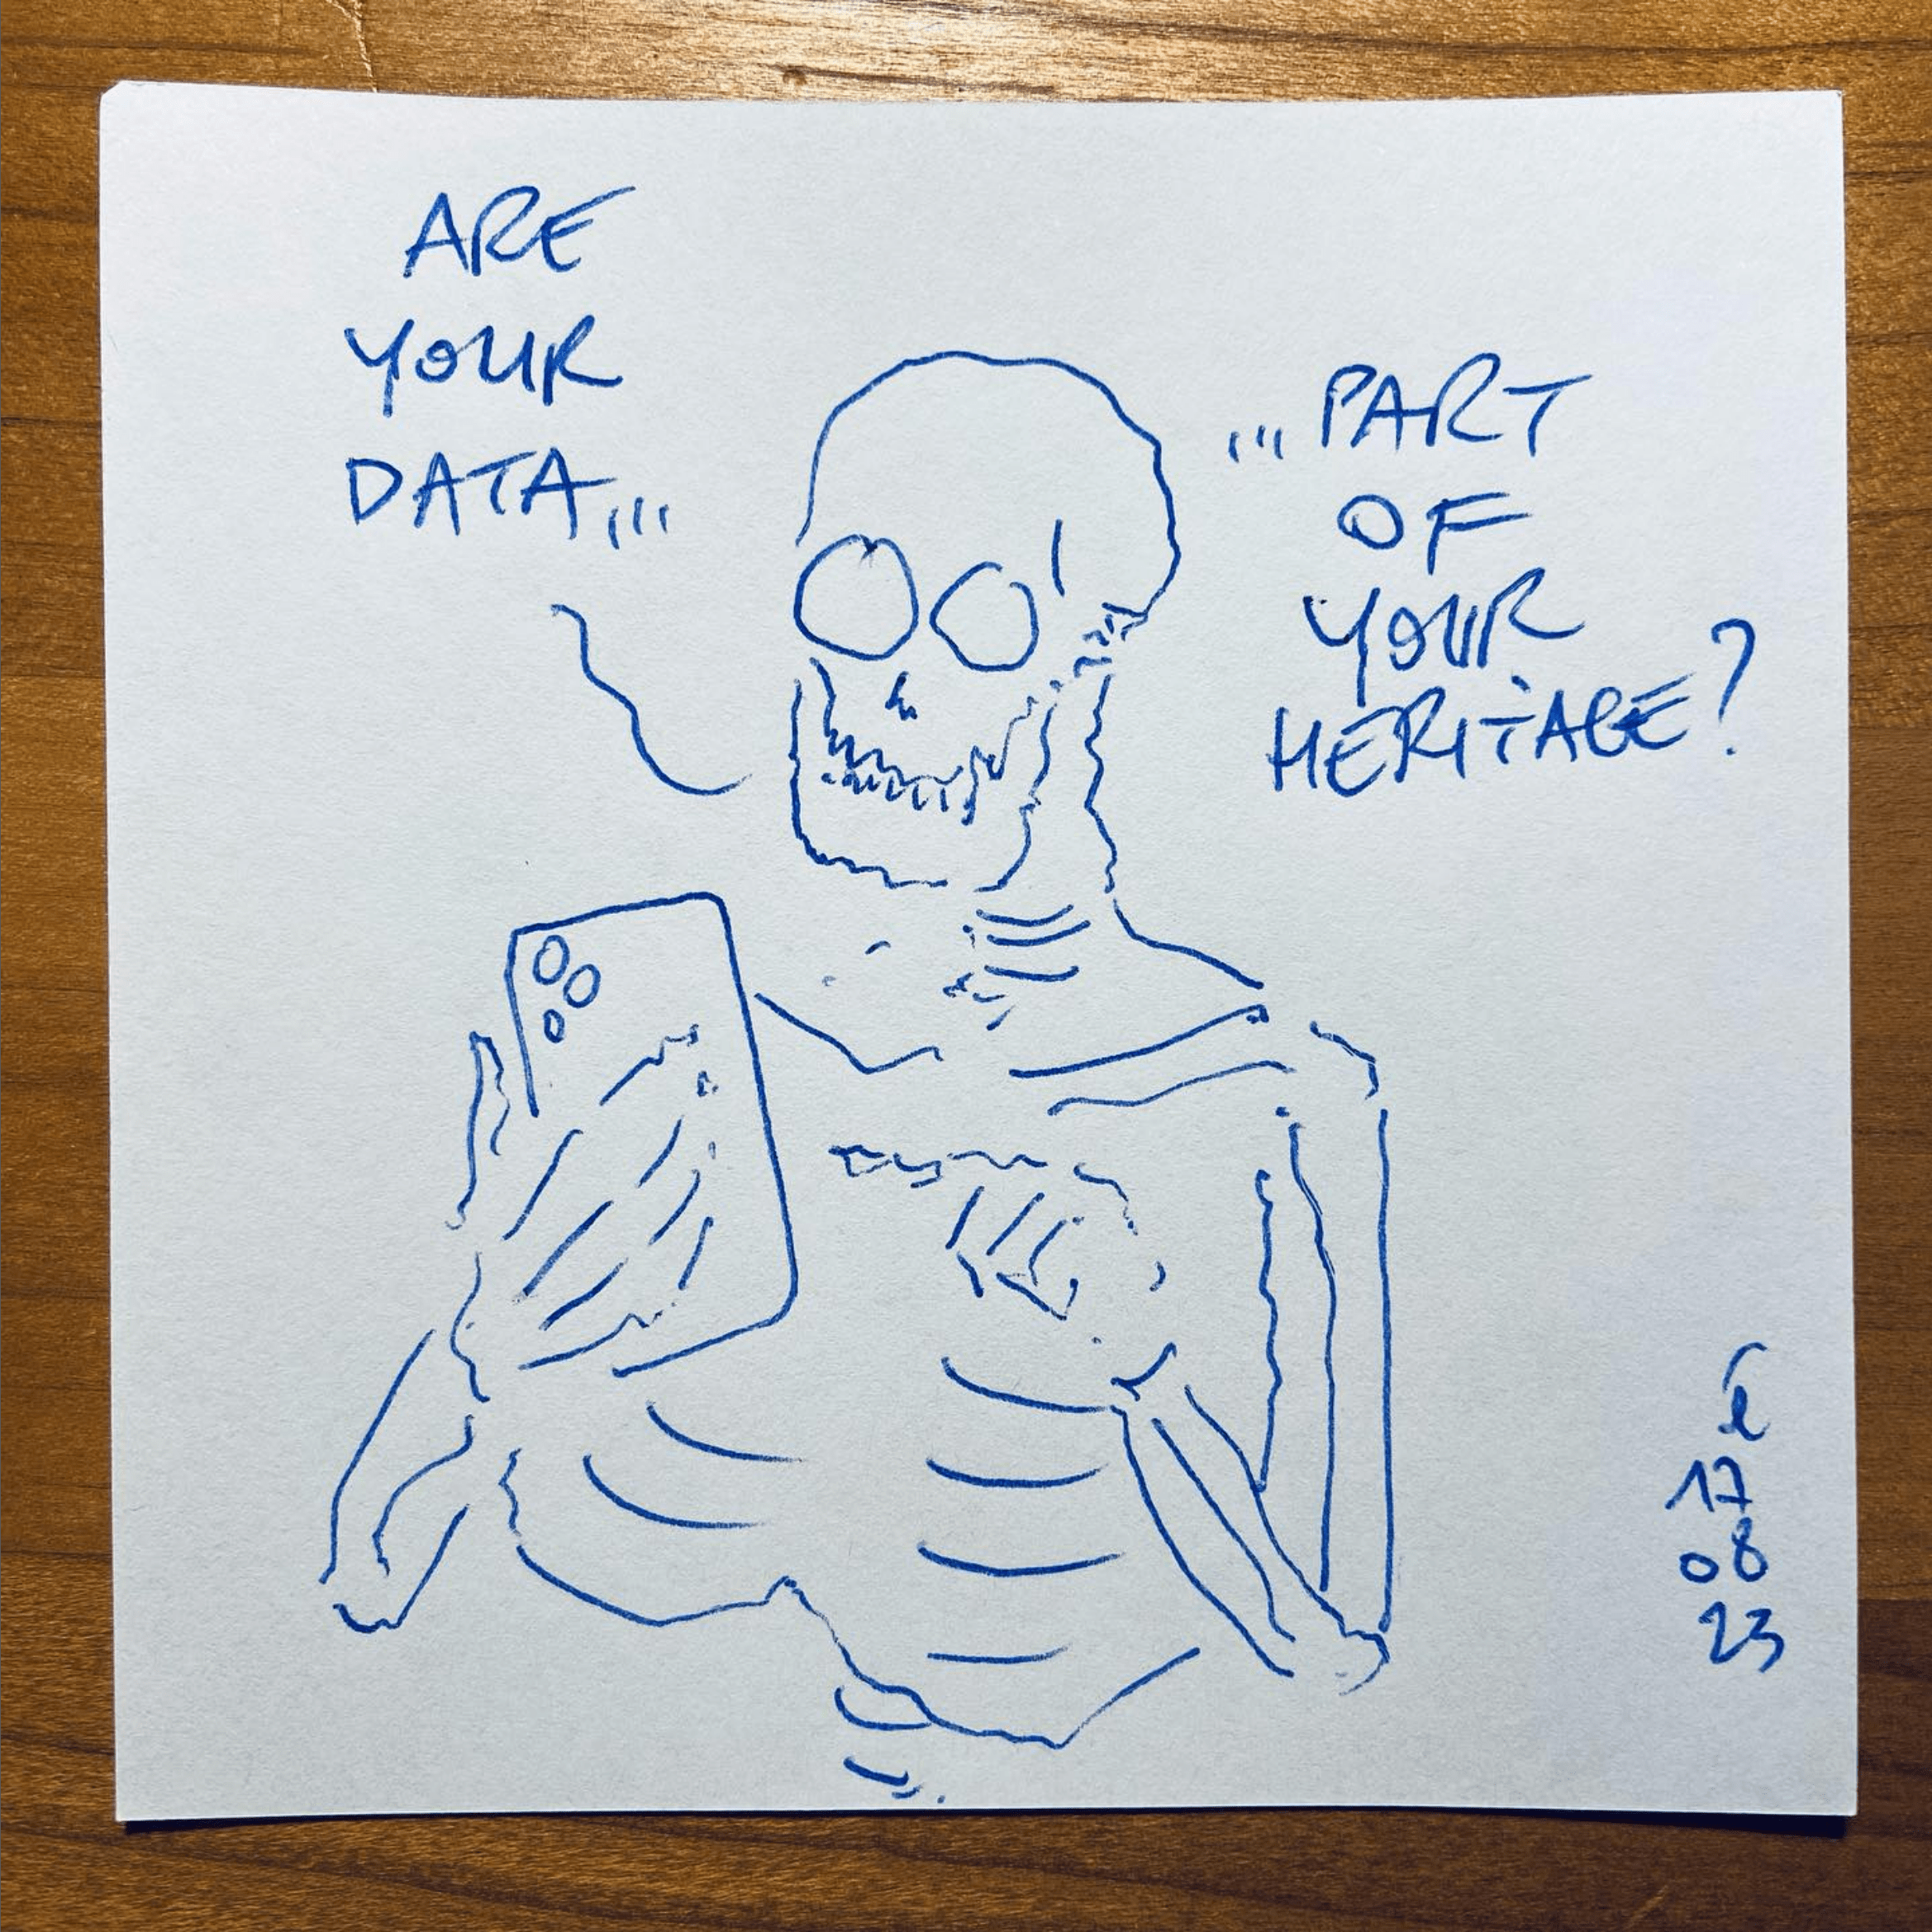 ARE
YOUR
DATA...
...PART
OF
YOUR
HERITAGE?
17
08
23